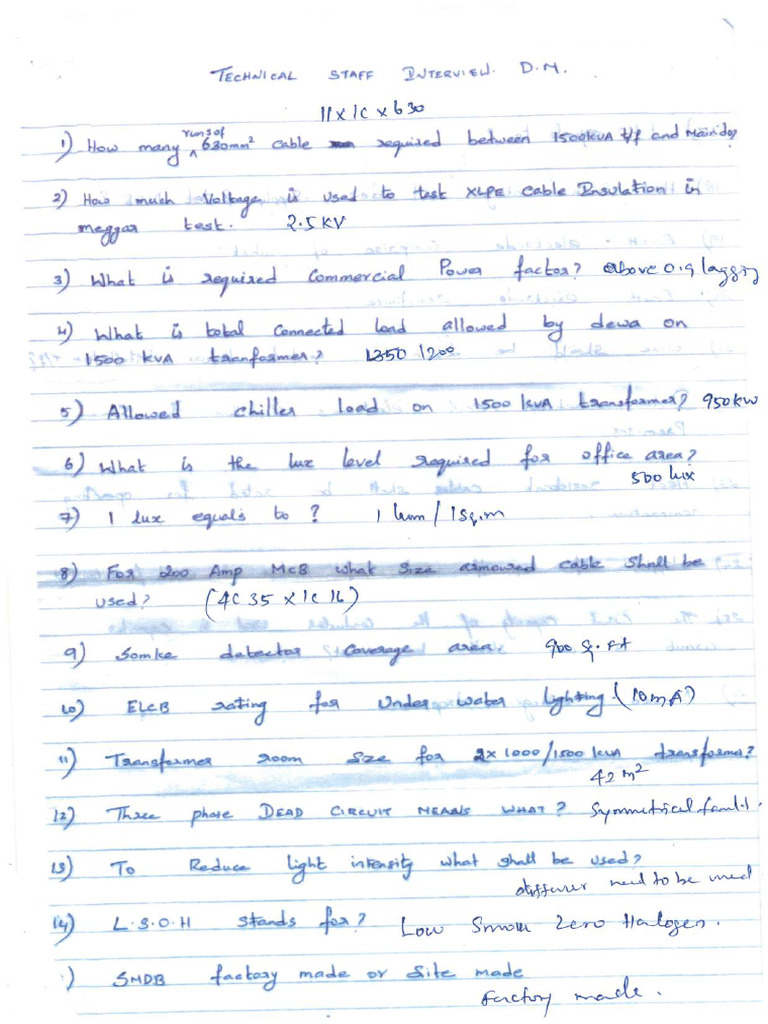 TECHNICAL STAFF INTERVIEW. D.M.
11 x 1C x 630
1) How many runs of 630mm² cable required between 1500KVA t/f and Main db?
2) How much Voltage is used to test XLPE Cable Insulation in
meggar test. 2.5 KV
3) What is required Commercial Power factor? above 0.9 lagging
4) What is total Connected load allowed by dewa on
1500 KVA tranformer? 1350 1200
5) Allowed chiller load on 1500 KVA transformer? 950 KW
6) What is the lux level required for office area?
500 lux
7) 1 lux equals to ? 1 lum / 1 Sq.m
8) For 200 Amp McB what size armoured cable shall be
used? (4C 35 x 1C 16)
9) Somke detector Coverage area 900 Sq.ft
10) ELCB rating for under water lighting (10mA)
11) Transformer room size for 2x1000/1500 KVA transformer?
42 m²
12) Three phase DEAD CIRCUIT MEANS WHAT? Symmetrical fault.
13) To Reduce light intensity what shall be used?
diffuser need to be used
14) L.S.O.H stands for? Low Smoke Zero Halogen.
) SMDB factory made or Site made
factory made.